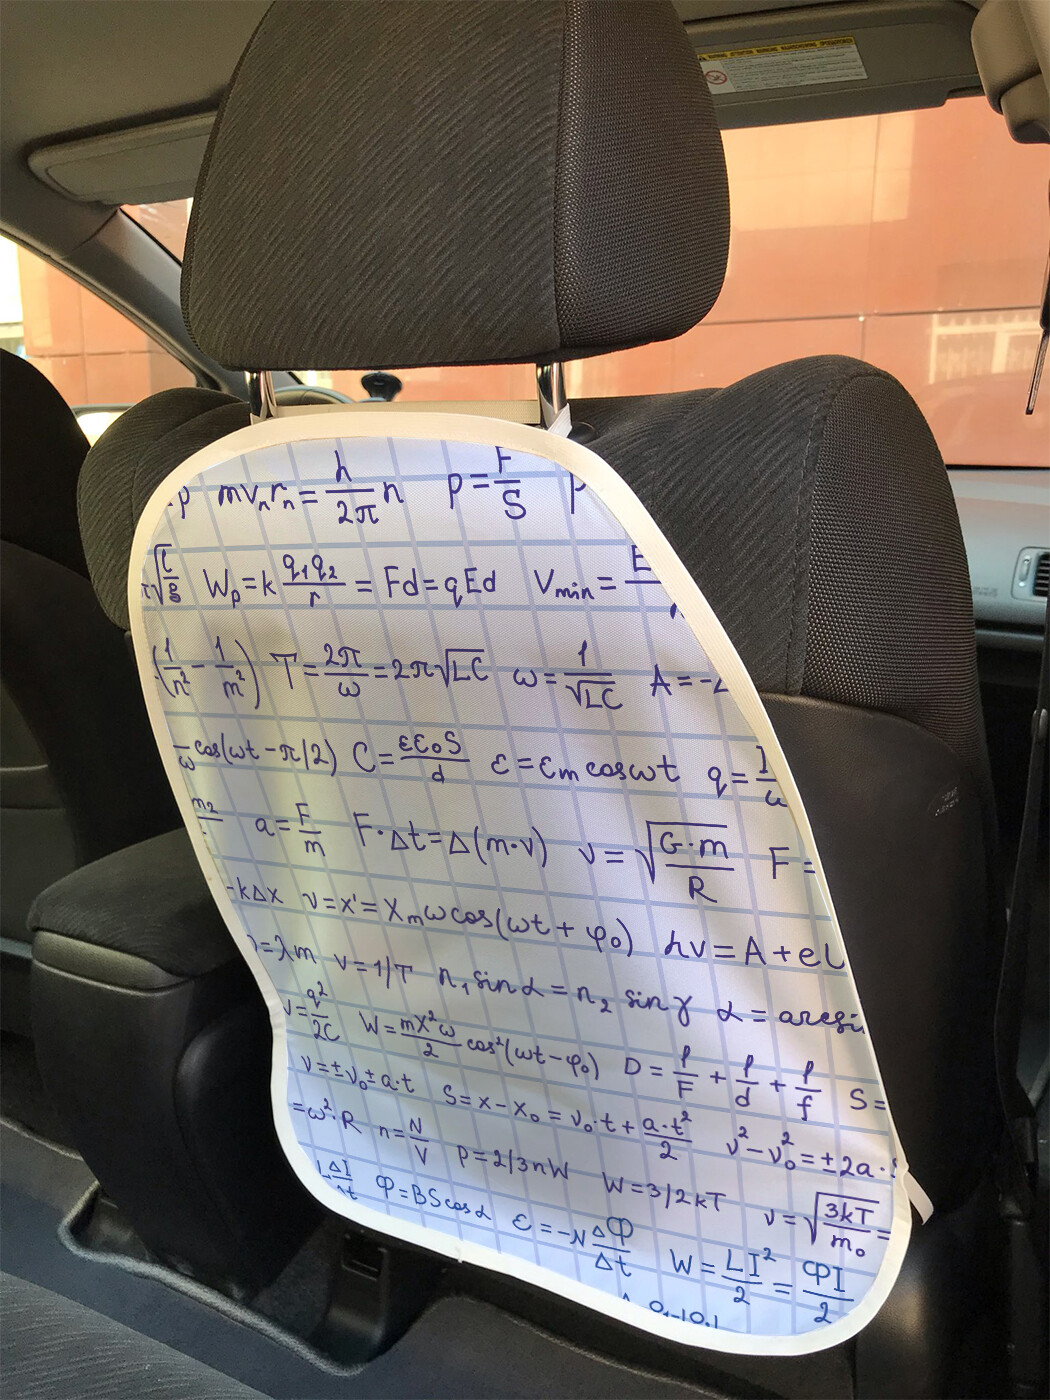 mvₙrₙ = h/2π n   p = F/S   p
√(l/g)   Wₚ = k q₁q₂/r = Fd = qEd   Vmin = E
(1/n² - 1/m²)   T = 2π/ω = 2π√LC   ω = 1/√LC   A = -
cos(ωt - π/2)   C = εε₀S/d   ε = εm cos ωt   q = I/ω
m₂   a = F/m   F·Δt = Δ(m·v)   v = √(G·m/R)   F =
-kΔx   v = x' = Xmωcos(ωt + φ₀)   hν = A + e
= λm   ν = 1/T   n₁ sin α = n₂ sin γ   α = arcsi
= q²/2C   W = mX²ω/2 cos²(ωt - φ₀)   D = 1/F + 1/d + 1/f   S =
v = ±v₀ ± a·t   S = x - x₀ = v₀·t + a·t²/2   v² - v₀² = ±2a·
= ω²·R   n = N/V   p = 2/3nW   W = 3/2kT   v = √(3kT/m₀) =
ΔI   Φ = BS cos α   ε = -N ΔΦ/Δt   W = LI²/2 = ΦI/2